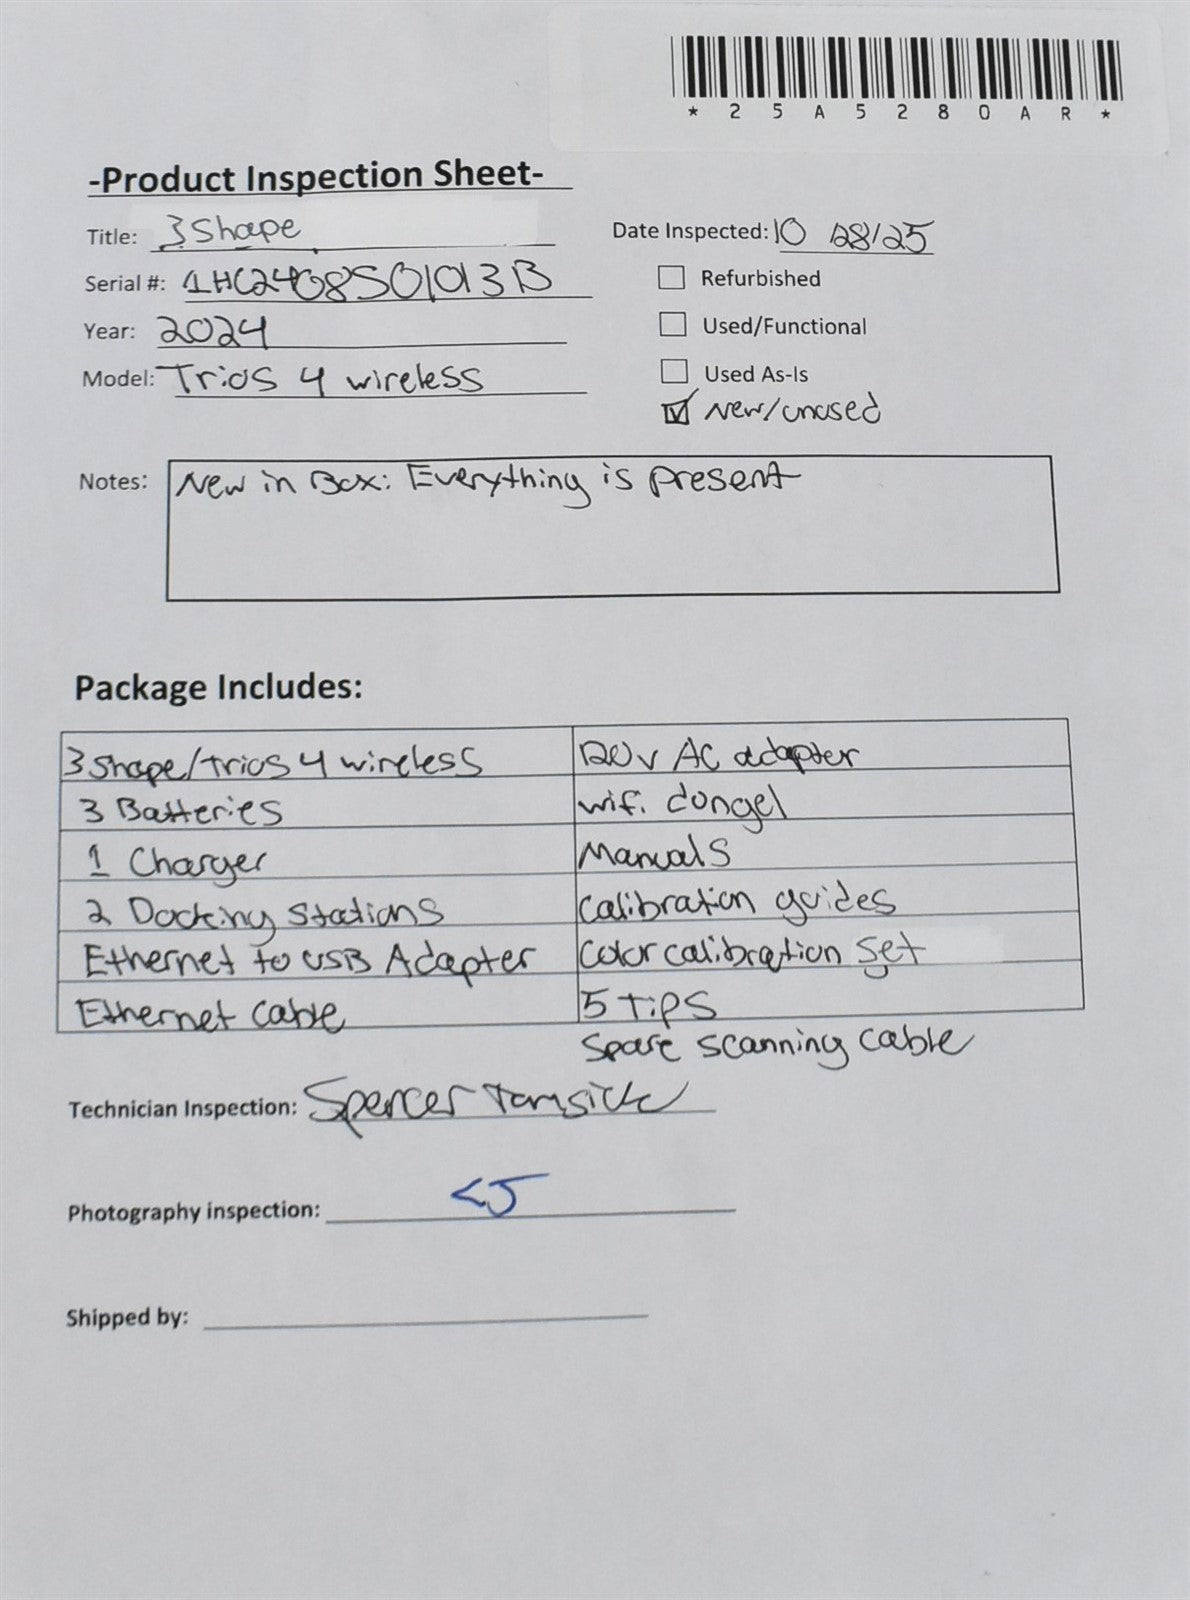 *25A5280AR*
-Product Inspection Sheet-
Title: 3Shape
Date Inspected: 10 28/25
Serial #: 1HC2408501013B
Refurbished
Year: 2024
Used/Functional
Model: Trios 4 wireless
Used As-Is
New/unused
Notes: New in Box: Everything is present
Package Includes:
3Shape/trios 4 wireless 120v AC adapter
3 Batteries wifi dongel
1 Charger Manuals
2 Docking Stations Calibration guides
Ethernet to USB Adapter Color calibration Set
Ethernet cable 5 Tips
Spare scanning cable
Technician Inspection: Spencer
Photography inspection:
Shipped by: